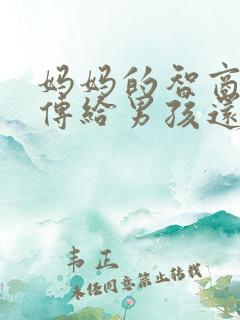 妈妈的智商
傳給男孩還
韦正
未经同意禁止转载